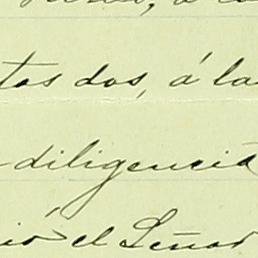 tos dos, á la
diligencia
ió el Señor